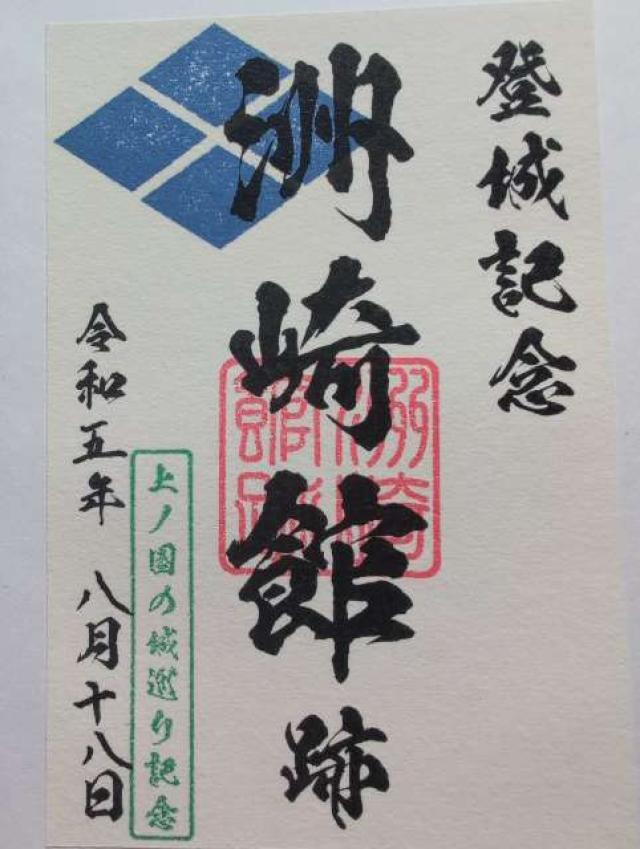 登城記念
洲崎館跡
洲崎館跡
上ノ國の城巡り記念
令和五年 八月十八日